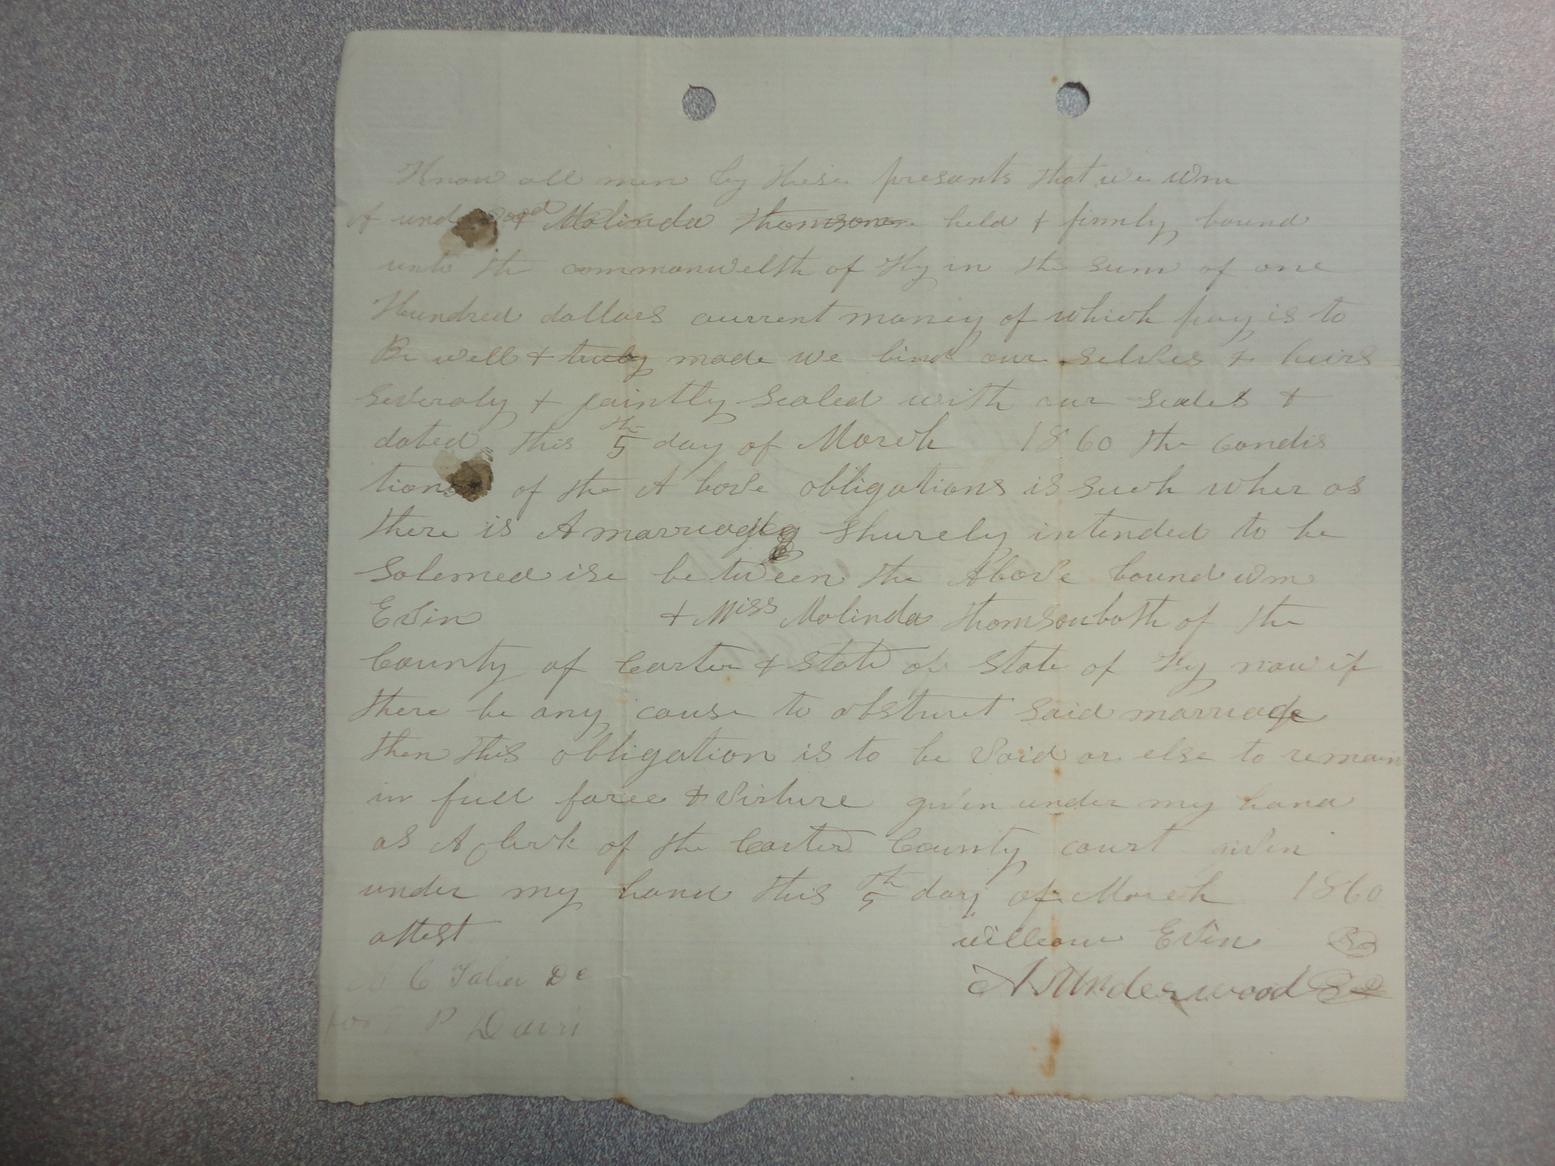 Know all men by these presents that we Wm
& Molinda Thomson held & firmly bound
unto the commonwelth of Ky in the sum of one
Hundred dollars current money of which pay is to
Be well & truly made we bind our selves & heirs
Severaly & jaintly Sealed with our seales &
dated this 5th day of March 1860 the condis
tions of the A bove obligations is such wher as
there is A marriage shurely intended to be
Solemed ise between the Above bound Wm
Evin & Miss Molinda Thomson both of the
County of Carter & State of State of Ky now if
there be any cause to obstruct said marriage
then this obligation is to be void or else to remain
in full force & virture given under my hand
as A clerk of the Carter County court given
under my hand this 5th day of March 1860
attest William Evin
A J Underwood